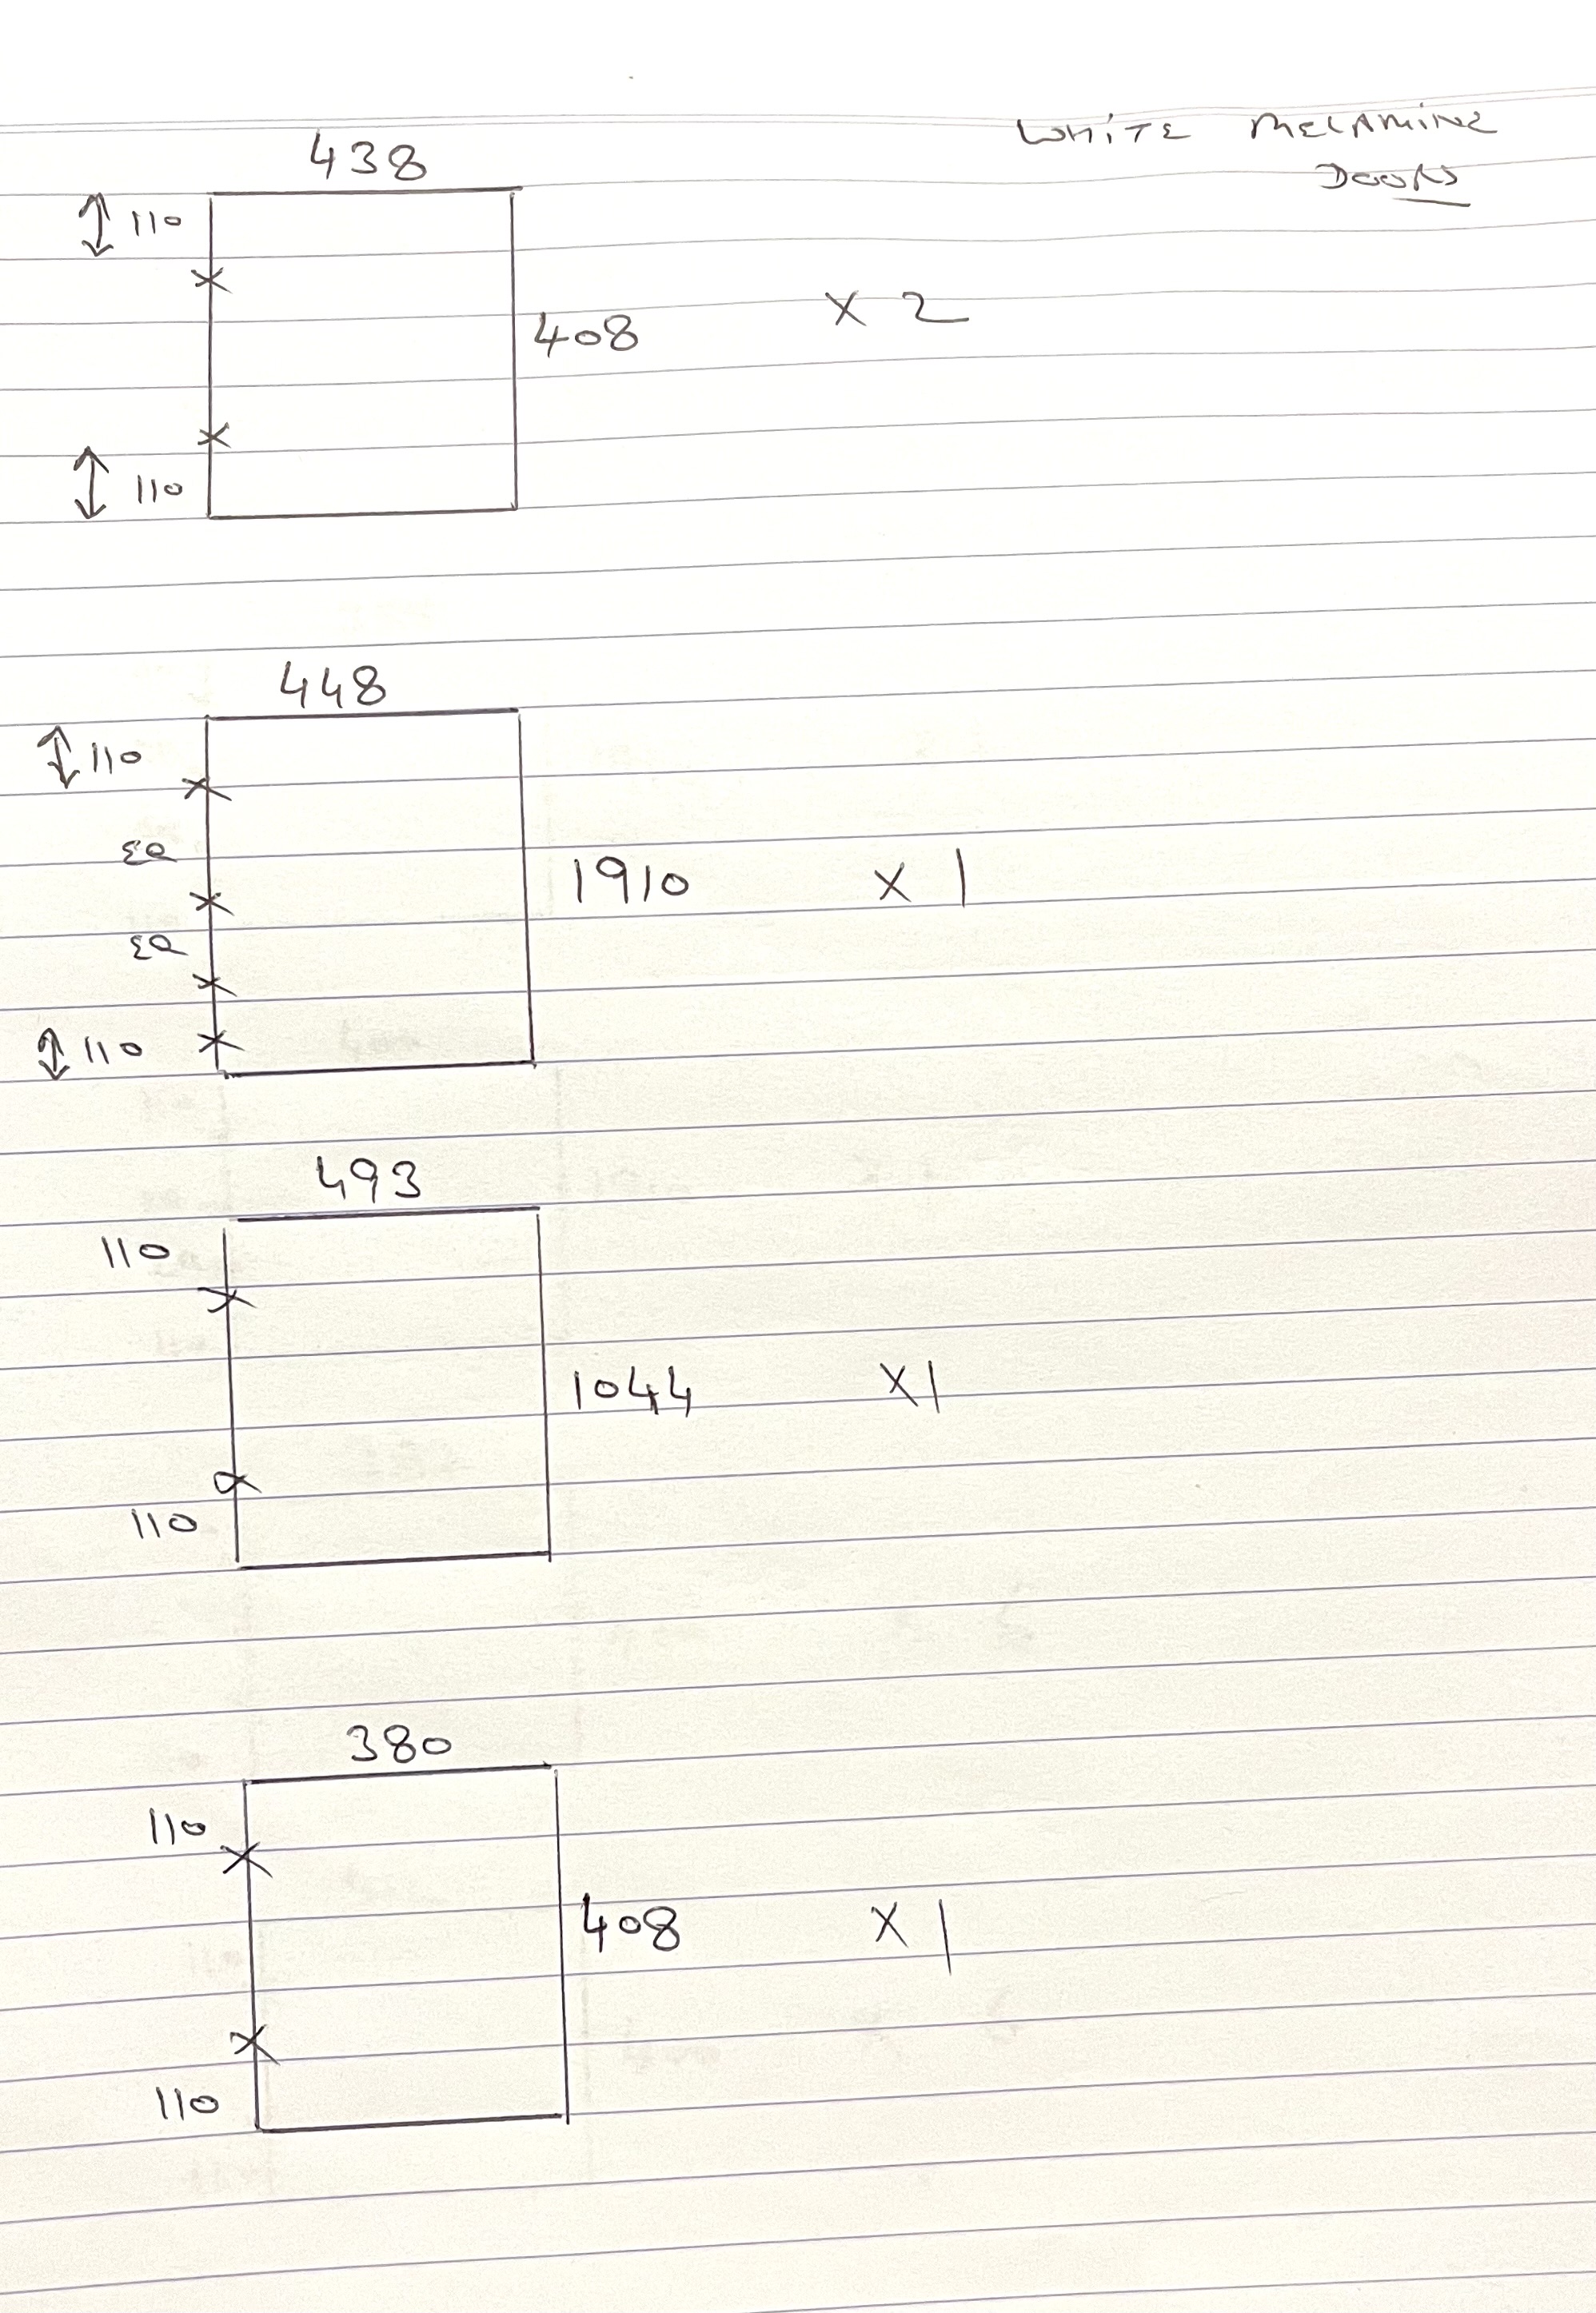 WHITE MELAMINE
DOORS
438
110
408 X 2
110
448
110
EQ
1910 X 1
EQ
110
493
110
1044 X1
110
380
110
408 X 1
110